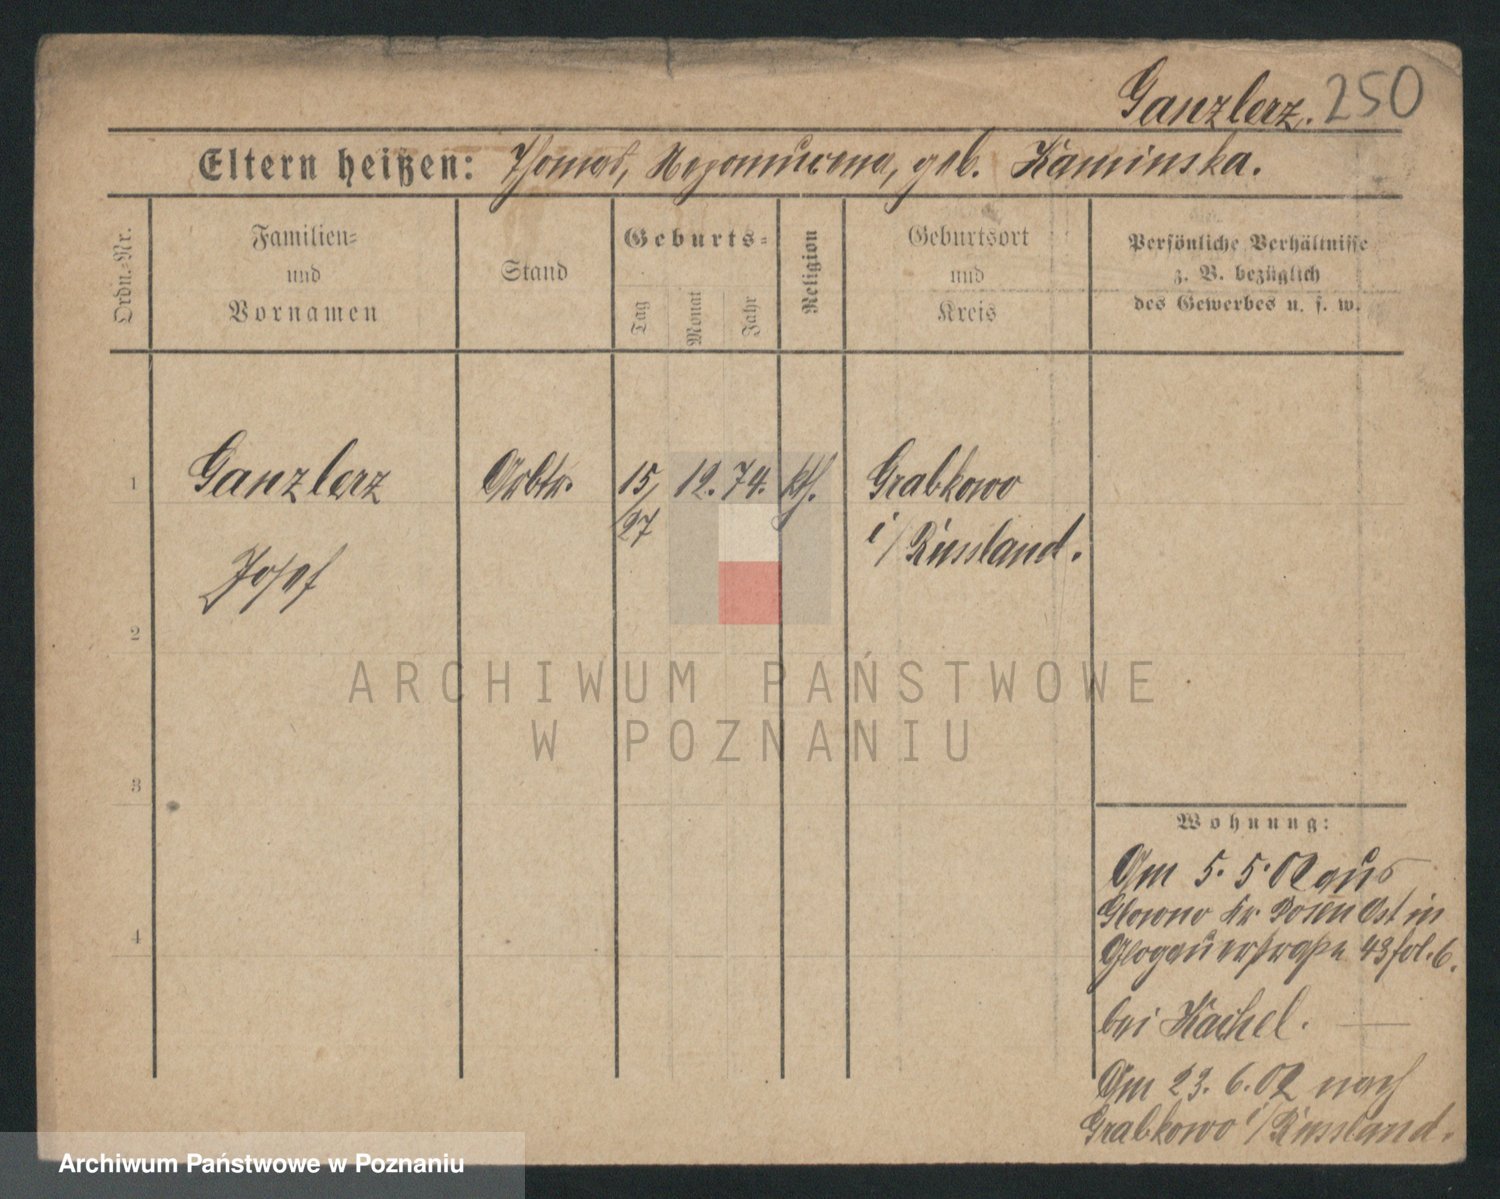 Ganzlerz. 250
Eltern heißen: Thomas, Nepomucena, geb. Kaminska.
Ordn.-Nr.
Familien-
und
Vornamen
Stand
Geburts-
Tag
Monat
Jahr
Religion
Geburtsort
und
Kreis
Persönliche Verhältnisse
z. B. bezüglich
des Gewerbes u. s. w.
1 Ganzlerz Arbtr. 15/ 12. 74. kth. Grabkowo
/27 i/Russland.
Josef
2
3
4
Wohnung:
Am 5. 5. 02 aus
Glowno Kr Posen Ost in
Glogauerstraße 43 fol. 6.
bei Kachel.
Am 23. 6. 02 nach
Grabkowo i/Russland.
ARCHIWUM PAŃSTWOWE
W POZNANIU
Archiwum Państwowe w Poznaniu